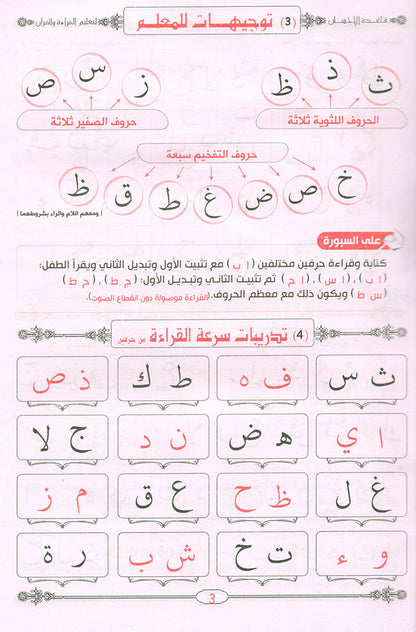 قاعدة الإحسان
(3) توجيهات للمعلم
لتعليم القراءة والقرآن
ث ذ ظ
ز س ص
الحروف اللثوية ثلاثة
حروف الصفير ثلاثة
حروف التفخيم سبعة
خ ص ض غ ط ق ظ
(ومعهم اللام والراء بشروطهما)
على السبورة
كتابة وقراءة حرفين مختلفين (ا ب) مع تثبيت الأول وتبديل الثاني ويقرأ الطفل:
(ا ب)، (ا س)، (ا ح) ثم تثبيت الثاني وتبديل الأول: (ح ط)، (ج ط)
(س ط) ويكون ذلك مع معظم الحروف. (القراءة موصولة دون انقطاع الصوت).
(4) تدريبات سرعة القراءة من حرفين
ث س ف ه ط ك ذ ص
ا ي ه ض ن د ج لا
غ ل ظ ح ع ق م ز
و ء ت خ ش ب ر ة
3